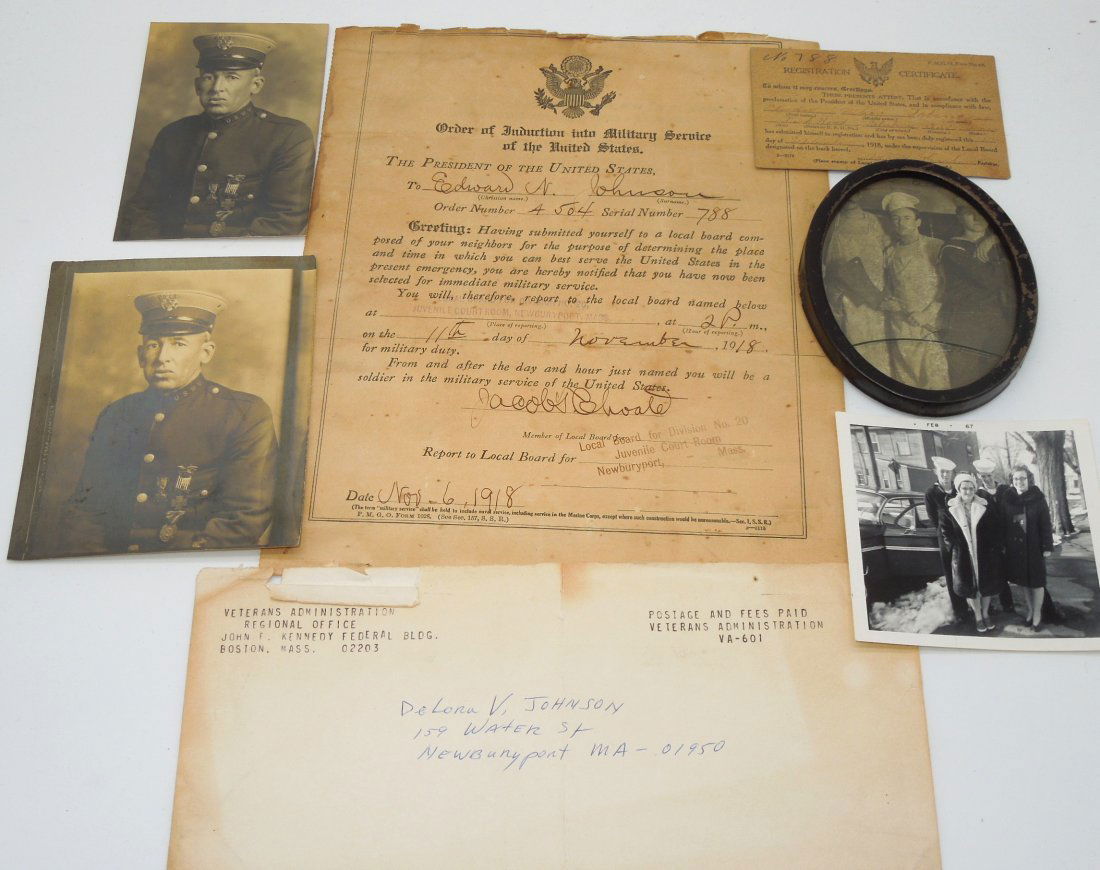 Order of Induction into Military Service
of the United States.
THE PRESIDENT OF THE UNITED STATES,
To Edward N. Johnson
(Christian name.) (Surname.)
Order Number A 504 Serial Number 788
Greeting: Having submitted yourself to a local board com-
posed of your neighbors for the purpose of determining the place
and time in which you can best serve the United States in the
present emergency, you are hereby notified that you have now been
selected for immediate military service.
You will, therefore, report to the local board named below
at JUVENILE COURT ROOM, NEWBURYPORT, MASS. , at 2 P. m.,
(Place of reporting.) (Hour of reporting.)
on the 11th day of November , 1918.
for military duty.
From and after the day and hour just named you will be a
soldier in the military service of the United States.
Jacob Choate
Member of Local Board for
Local Board for Division No. 20
Juvenile Court Room
Newburyport, - Mass.
Report to Local Board for
Date Nov-6, 1918
(The term "military service" shall be held to include naval service, including service in the Marine Corps, except where such construction would be unreasonable.—Sec. 1, S. S. R.)
P. M. G. O. FORM 1028. (See Sec. 157, S. S. R.)
No 788
REGISTRATION CERTIFICATE.
To whom it may concern, Greetings:
THESE PRESENTS ATTEST, That in accordance with the
proclamation of the President of the United States, and in compliance with law,
Johnson
has submitted himself to registration and has by me been duly registered this
day of 1918, under the supervision of the Local Board
designated on the back hereof.
FEB 67
VETERANS ADMINISTRATION
REGIONAL OFFICE
JOHN F. KENNEDY FEDERAL BLDG.
BOSTON, MASS. 02203
POSTAGE AND FEES PAID
VETERANS ADMINISTRATION
VA-601
DeLora V. JOHNSON
159 WATER St
NEWBURYport MA - 01950